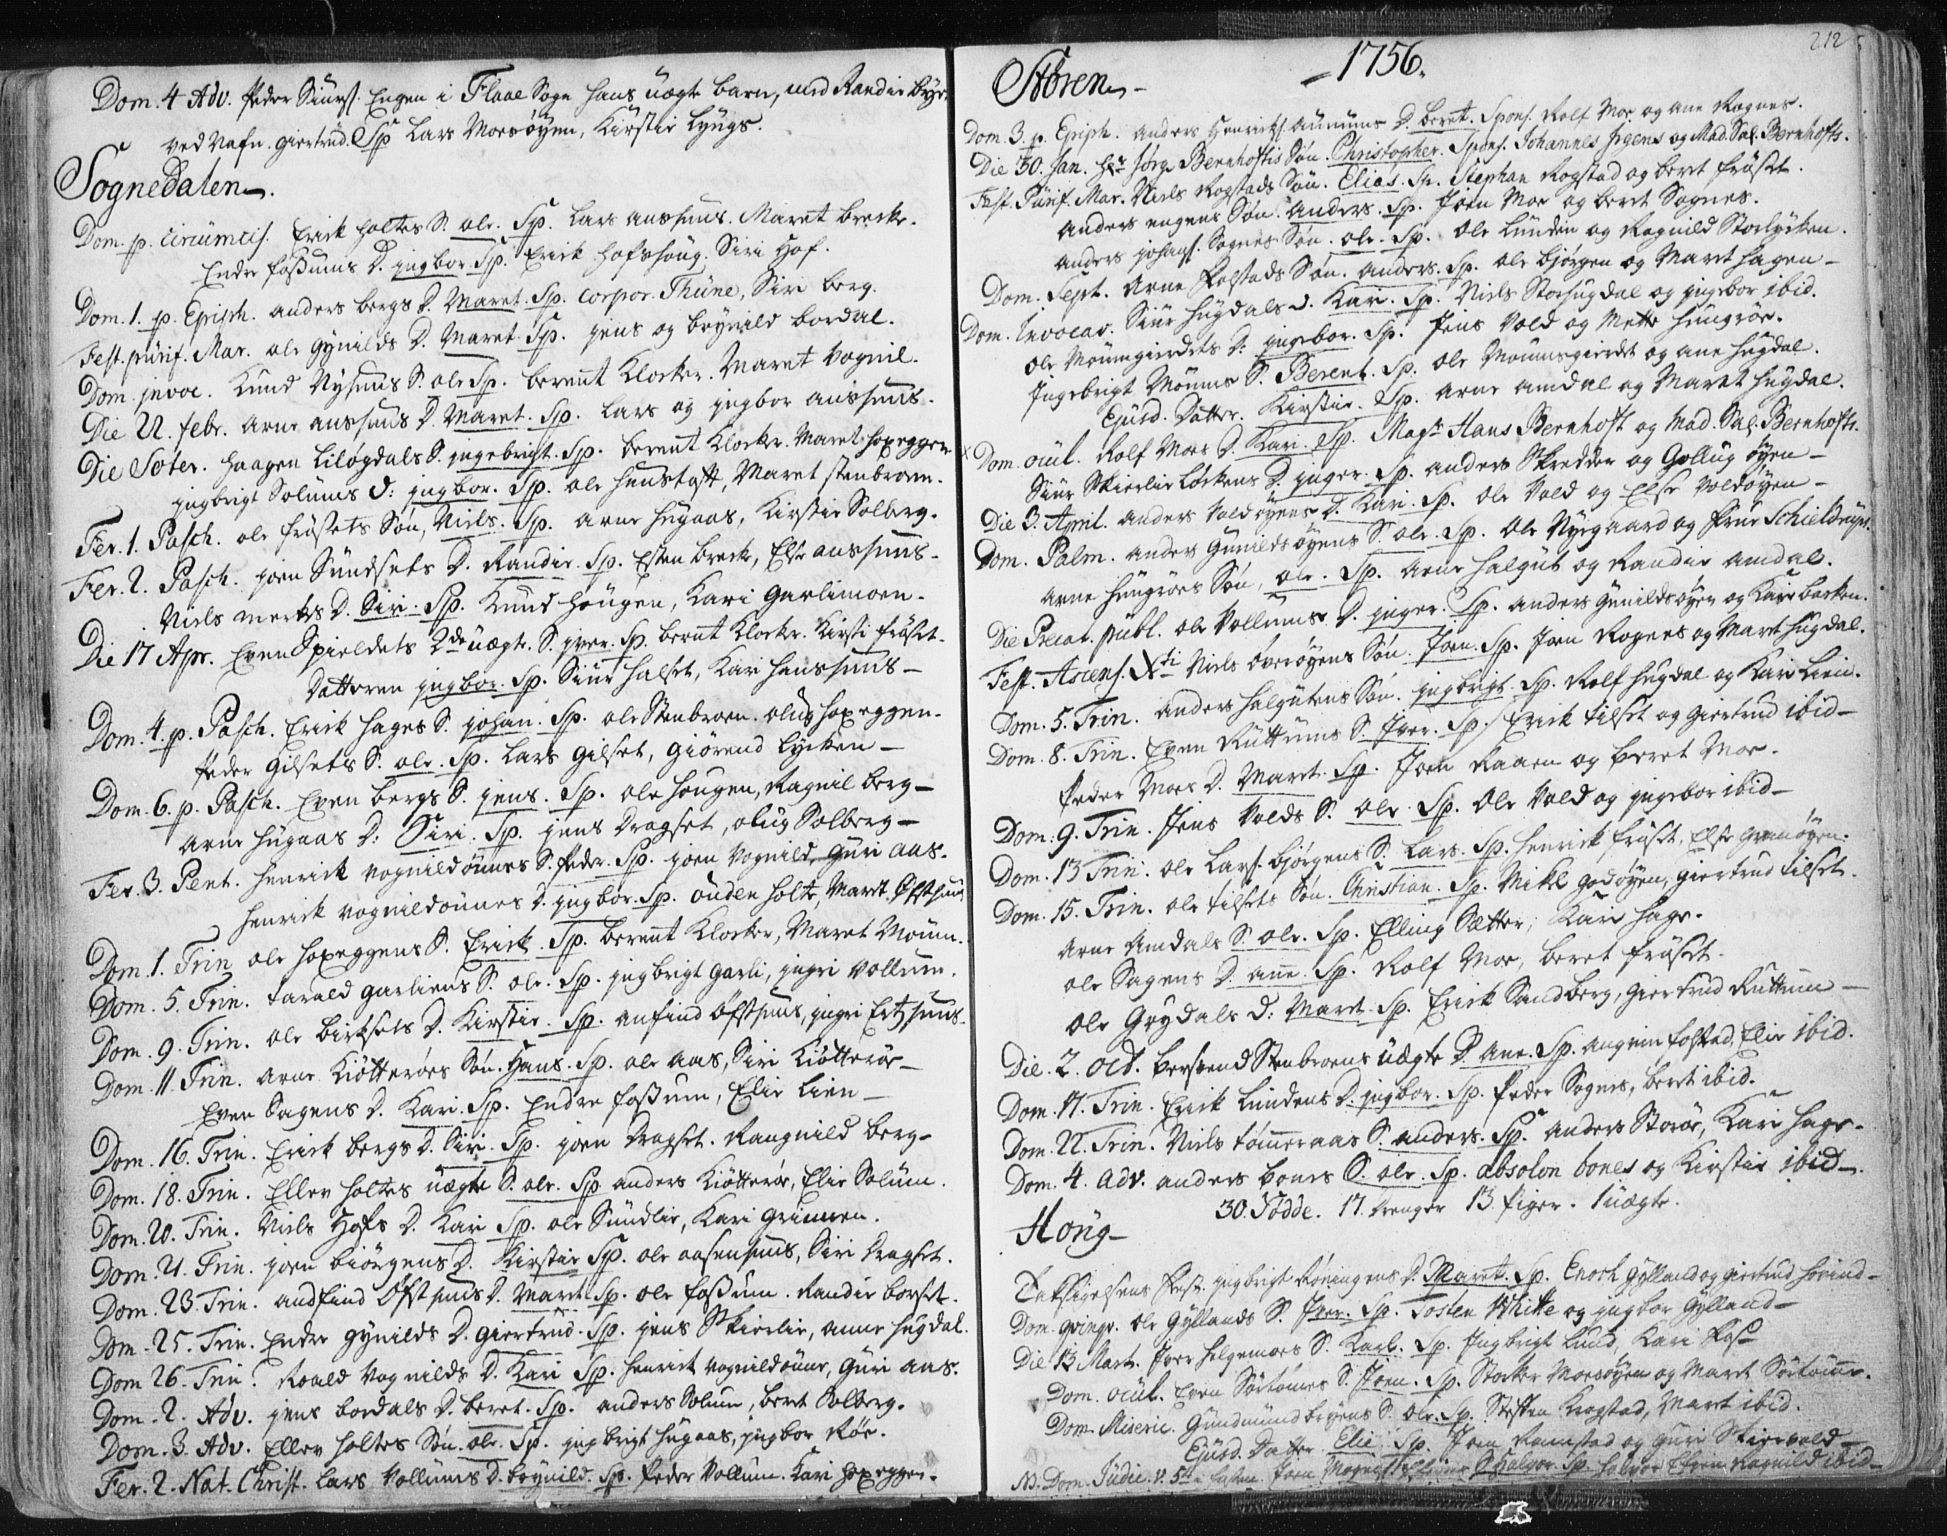 Dom. 4 Adv. Peder Siurs. Engen i Flaae Sogn hans uægte barn, med Randie
ved Nafn. giertrud. Sp Lars Moesøyen, Kirstie Lyngs.
Sognedalen.
Dom. p. circumcis. Erick holtes S. ole. Sp. Lars aussums. Maret brecke.
Endre fossums D. jngbor. Sp. Erick hofshoug. Siri Hof.
Dom. 1. p. Epiph. anders bergs D. Maret. Sp. corpor. Thüne, Siri berg.
Fest. purif. Mar. ole gynilds D. Maret. Sp. jens og brynild bordal.
Dom. jnvoc. Knud Nysuus S. ole Sp. berent Klocker. Maret vognil.
Die 22. febr. Arne aussums D. Maret. Sp. Lars og jngbor aussums.
Die Soter. haagen Liløgdals S. jngebrigt. Sp. berent Klocker. Maret hoxeggen
jngbrigt Solums D: jngbor. Sp. ole henstast, Maret stenbroen.
Fer. 1. Pasch. ole frøsets Søn, Niels. Sp. arne hugaas, Kirstie Solberg.
Fer. 2. Pasch. joen Sundsets D. Randie. Sp. Esten breck, Else aussums.
Niels mertes D. Siri. Sp. Knud hougen, Kari Garlimoen.
Die 17 Apr. Even Spieldets 2de uægte. S. jver. Sp. bernt Klocker. Kirsti frøset.
Datteren jngbor. Sp. Siur halset, Kari hanssuus
Dom. 4. p. Pasch. Erick hages S. johan. Sp. ole Stenbroen. olug hoxeggen.
Peder Gilsets S. ole. Sp. Lars Gilset, Giørend Lycken
Dom. 6. p. Pasch. Even bergs S. jens. Sp. ole hougen, Ragnil berg
Arne hugaas D: Siri. Sp. jens Dragset, olug Solberg
Fer. 3. Pent. henrick vognildounes S. Peder. Sp. joen Vognild, Guri aas.
henrick vognildounes D. jngbor. Sp. ouden holte, Maret Øfstsuus
Dom. 1. Trin ole hoxeggens S. Erick. Sp. berent Klocker, Maret Moum.
Dom. 5. Trin. Tarald garliens S. ole. Sp. jngbrigt garli, jngri Vollum.
Dom. 9. Trin. ole birksets D. Kirstie. Sp. anfind Øfstsuus, jngri Ertzsuus.
Dom. 11 Trin. Arne Kiøtterøes Søn. Hans. Sp. ole aas, Siri Kiøtterøe
Even Sagens D. Kari. Sp. Endre fossum, Elie Lien
Dom. 16. Trin. Erick bergs D. Siri. Sp. joen Dragset. Rangnild berg
Dom. 18. Trin. Ellev holtes uægte S. ole. Sp anders Kiøtterøe, Elie Solum.
Dom. 20. Trin. Niels Hofs D. Kari Sp. ole Sundlie, Kari Grinnen.
Dom. 21. Trin. joen biørgens D. Kirstie Sp. ole aasensuus, Siri Dragset.
Dom. 23. Trin. andfind Øfstsuus D. Maret Sp. ole fossum. Randie borset.
Dom. 25. Trin. Endre gynilds D. giertrud. Sp. jens Skierlie, anne hugdal.
Dom 26. Trin. Roald vognilds D. Kari Sp. henrick vognildoune, Guri aas.
Dom. 2. Adv. jens bordals D. beret. Sp. anders Solum, beret Solberg.
Dom. 3. Adv. Ellev holtes Søn. ole. Sp. jngbrigt hugaas, jngbor Røe.
Fer. 2. Nat. Christ. Lars Vollums D. brynild. Sp. Peder Vollum. Kari hoxeggen.
212
Støren
1756.
Dom. 3. p. Epiph. anders Henricks. aunums D. beret. Spons. Rolf Moe og ane Rognes.
Die 30. Jan. Hr Jørg. Bernhofts Søn. Christopher. Spons. Johannes Jrgens og Mad. Sal. Bernhofts.
Fest. Purif. Mar. Niels Rogstads Søn. Elias. Sp. Stephan Rogstad og beret frøset.
Anders engens Søn. anders. Sp. Joen Moe og beret Sognes.
anders johans. Sognes Søn. ole. Sp. Ole Lunden og Ragnild Storlycken.
Dom. Sept. Arne Folstads Søn. anders. Sp. ole bjørgen og Maret hagen
Dom. Invocav. Siur hugdals D. Kari. Sp. Niels Storhugdal og jngebor ibid.
Ole Moumgierdets D: jngebor. Sp. Jens Vold og Mette hungrøe.
Jngebrigt Moums S. Berent. Sp. ole Moumsgierdet og ane hugdal.
Ejusd. Datter. Kirstie. Sp. arne amdal og Maret hugdal.
Dom. ocul. Rolf Moes D. Kari. Sp. Magr Hans Bernhoft og Mad. Sal. Bernhofts.
Siur Skierlieløckens D. jnger. Sp. anders Skredder og Gollug øyen
Die 3. April. anders Voldøyens D. Kari. Sp. Ole Vold og Else Voldøyen
Dom. Palm. anders Gunildsøyens S. ole. Sp. Ole Nyegaard og Frue Schieldrups.
Arne hungrøes Søn, ole. Sp. arne halgut og Randie amdal.
Die Precat. publ. ole Vollums D. jnger. Sp. anders Gunildsøyen og Kari backen.
Fest. Ascens. Xti Niels overøyens Søn. Joen. Sp. Joen Rognes og Maret hugdal.
Dom. 5. Trin. anders halgutens Søn. jngbrigt. Sp. Rolf hugdal og Kari Lien.
Dom. 8. Trin. Even Ruttums S. Jver. Sp. Erick tilset og giertrud ibid
Peder Moes D. Maret. Sp. Joen Raaen og beret Moe.
Dom. 9. Trin. Jens Volds S. ole. Sp. Ole Vold og jngebor ibid
Dom. 13 Trin. ole Lars. bjørgens S. Lars. Sp. henrick frøset, Else Grenøyen.
Dom. 15. Trin. ole tilsets Søn. Christian. Sp. Mikel godøyen, giertrud tilset.
Arne Amdals S. ole. Sp. Elling Sætter, Kari hage.
ole Sagens D. ane. Sp. Rolf Moe, beret frøset.
Ole Grydals D: Maret. Sp. Erick Sandberg, giertrud Ruttum
Die. 2. Oct. berswend Stenbroens uægte D. Ane. Sp. angrim folstad, Elie ibid.
Dom. 17. Trin. Erick Lundens D. jngbor. Sp. Peder Sognes, beret ibid.
Dom. 22. Trin. Niels tømmeraas S. anders. Sp. anders Storøe, Kari hage.
Dom. 4. Adv. anders bones S. ole. Sp. absolon bones og Kirstie ibid.
30. Fødde. 17. Drenger 13. Piger. 1 uægte.
Houg
Taksigelsens Fest. jngbrigt Røningens D. Maret. Sp. Enoch Gylland og giertrud horind
Dom. qvinqv. Ole Gyllands S. Jver. Sp. Tosten White og jngbor Gylland
Die 13 Mart. Jver helgemoes S. Karl. Sp. Jngbrigt Lund, Kari Foss
Dom. ocul. Even Sørtomes S. Joen. Sp. Stocker Moesøyen og Maret Sørtome.
Dom. Miseric. Gundmund bryens S. ole. Sp. Steffen Krogstad, Maret ibid.
Ejusd. Datter Elie. Sp. Joen Ramstad og Guri Skierevold
NB. Dom. Judic. Joen S. halvor. Sp. halvor Ragnild ibid